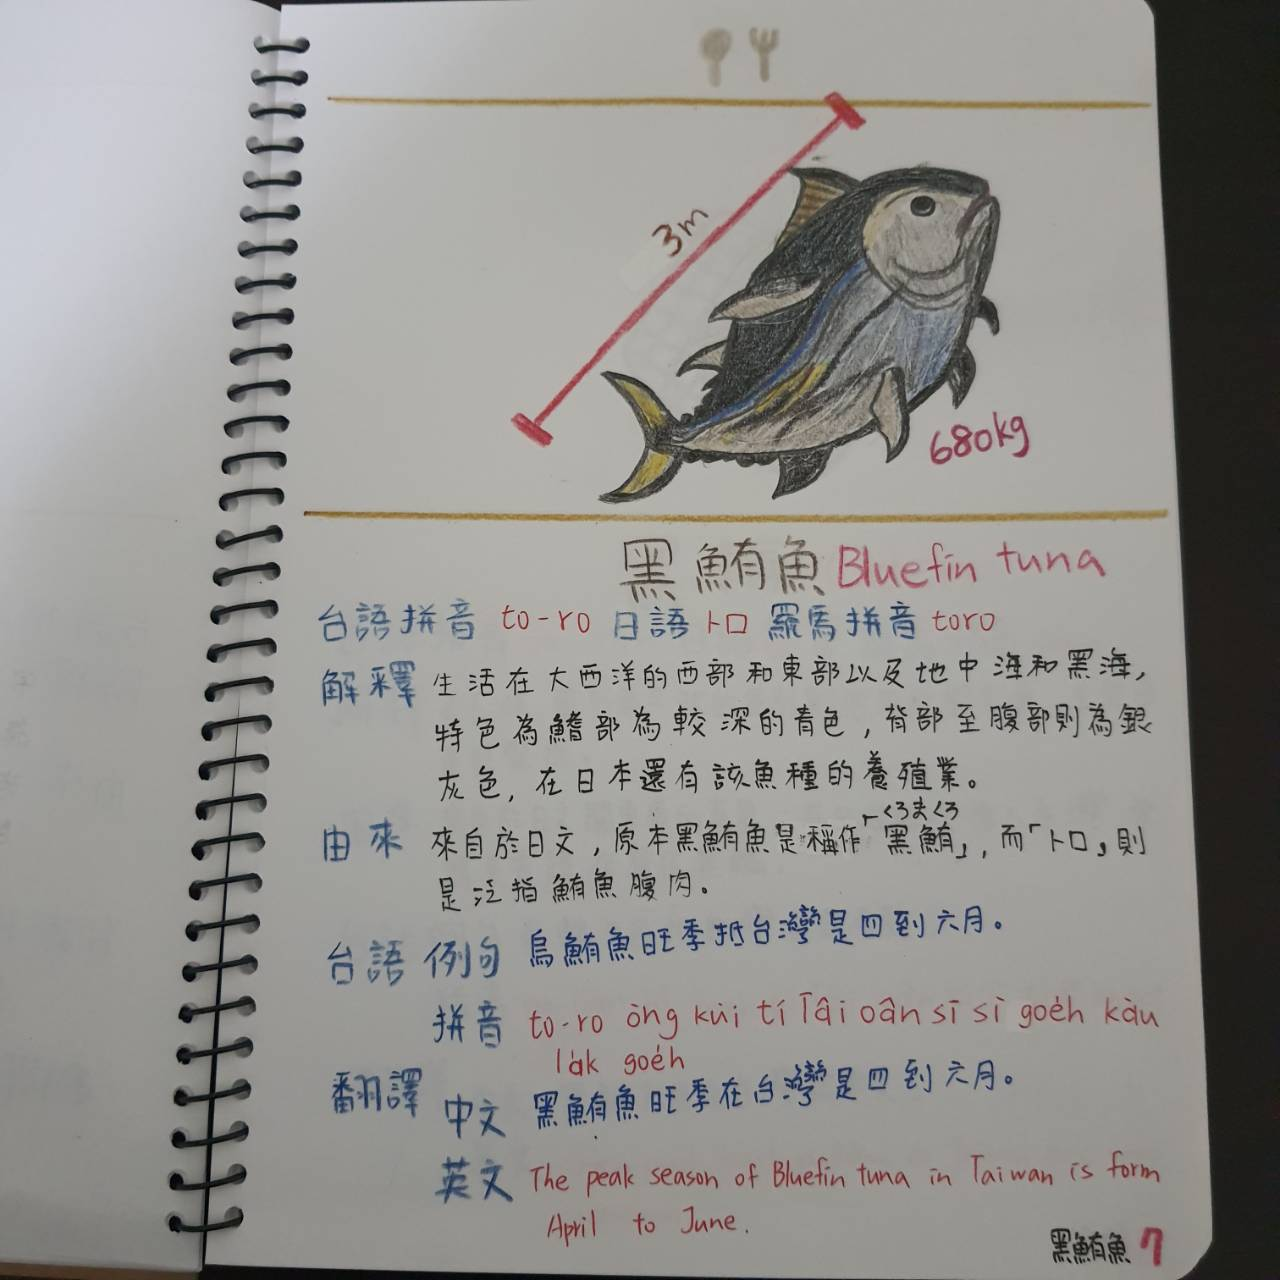 3m
680kg
黑鮪魚 Bluefin tuna
台語拼音 to-ro 日語 トロ 羅馬拼音 toro
解釋 生活在大西洋的西部和東部以及地中海和黑海,
特色為鰭部為較深的青色,背部至腹部則為銀
灰色,在日本還有該魚種的養殖業。
くろまぐろ
由來 來自於日文,原本黑鮪魚是稱作「黑鮪」,而「トロ」則
是泛指鮪魚腹肉。
台語例句 烏鮪魚旺季抵台灣是四到六月。
拼音 to-ro òng kùi tí Tâi oân sī sì goe̍h kàu
la̍k goe̍h
翻譯 中文 黑鮪魚旺季在台灣是四到六月。
英文 The peak season of Bluefin tuna in Taiwan is form
April to June.
黑鮪魚 7